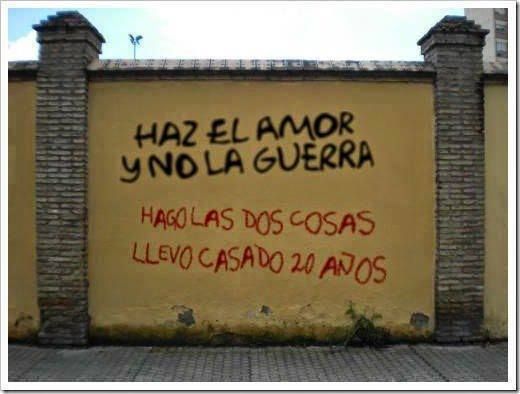 HAZ EL AMOR
Y NO LA GUERRA
HAGO LAS DOS COSAS
LLEVO CASADO 20 AÑOS